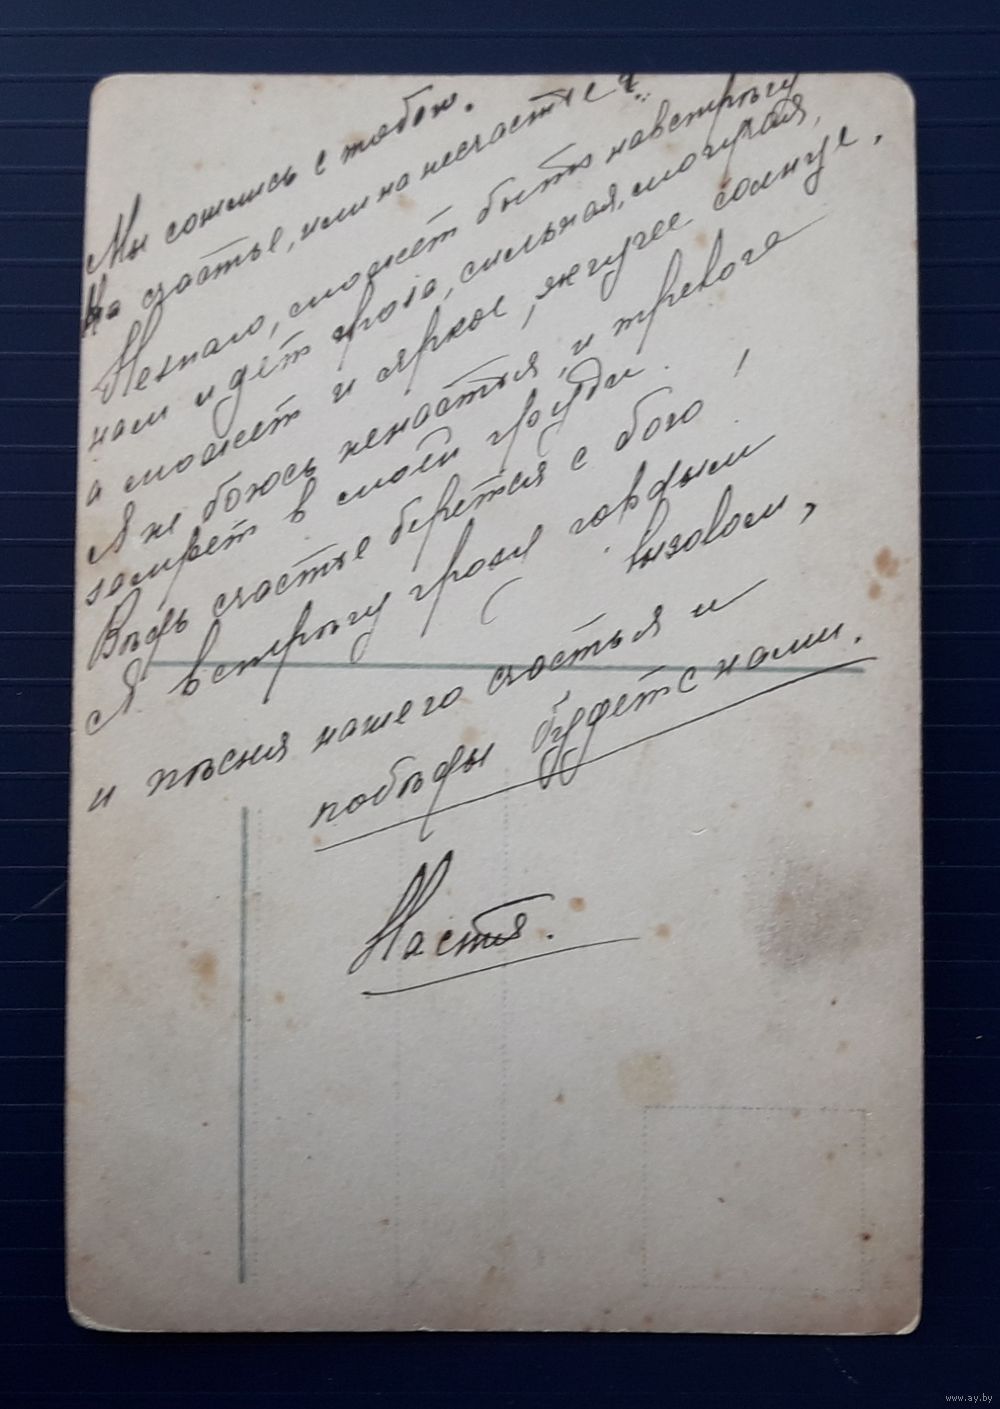 Мы сошлись с тобою.
На счастье, или на несчастье?..
Незнаю, может быть навстрѣчу
нам идет гроза, сильная, могучая,
а может и яркое, жгучее солнце.
Я не боюсь ненастья, и тревога
замрет в моей груди.
Вѣдь счастье берется с бою!
Я встрѣчу грозы гордым
вызовом,
и пѣсня нашего счастья и
побѣды будет с нами.
Настя.
www.ay.by